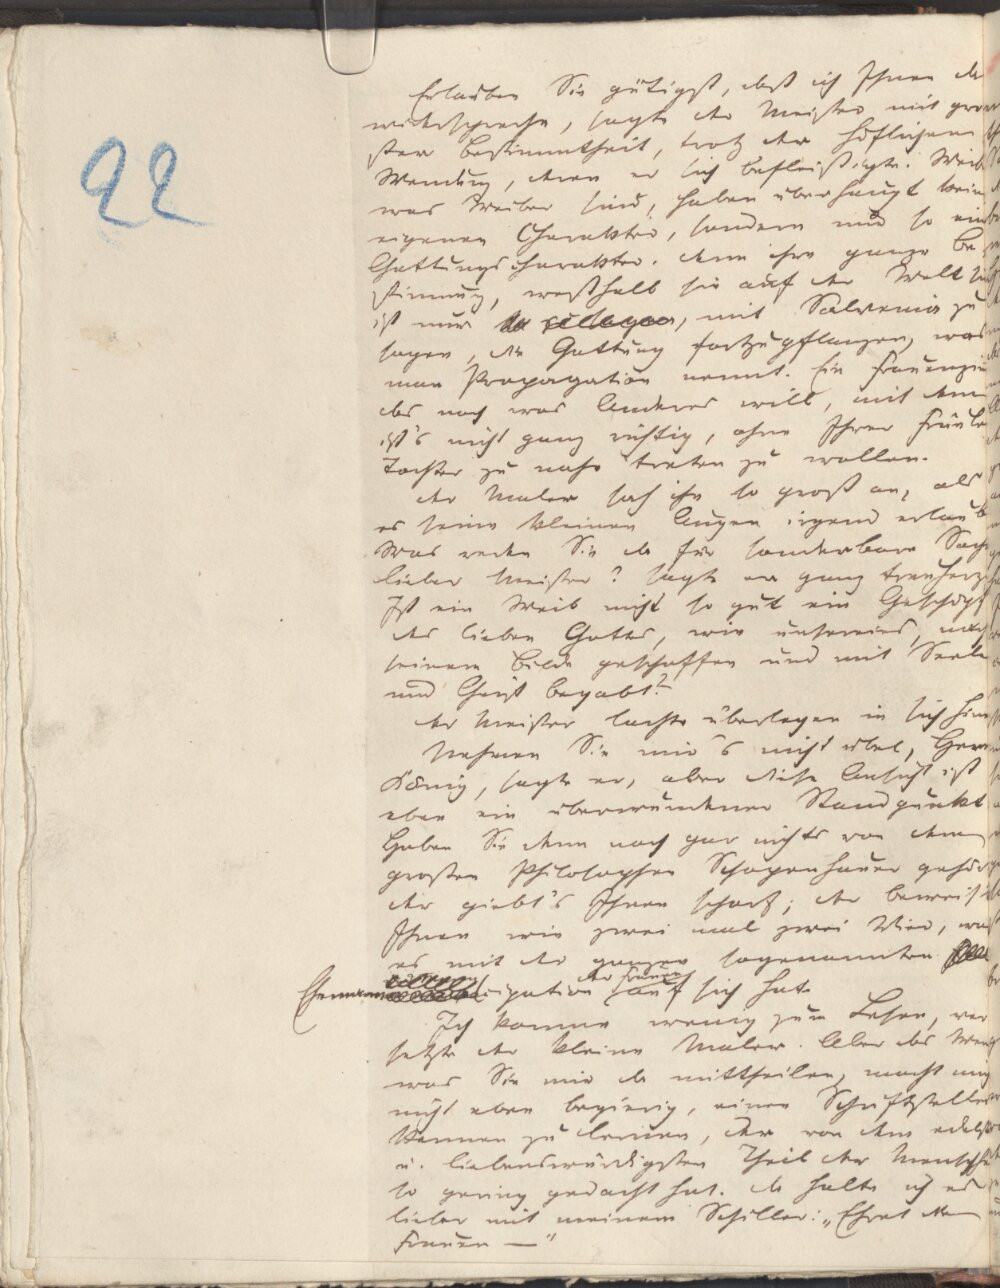 22
Erlauben Sie gütigst, daß ich Ihnen da
widerspreche, sagte der Meister mit gro
ßer Bestimmtheit, trotz der höflichen
Wendung, deren er sich befleißigte. Weib
was Weiber sind, haben überhaupt kein
eigenen Charakter, sondern nur so ein
Gattungscharakter. Denn ihre ganze Be
stimmung, weßhalb sie auf der Welt sin
ist nur mit Salvenia zu
sagen, die Gattung fortzupflanzen, was
man Propagation nennt. Ein Frauenzim
das noch was Anderes will, mit dem
ist's nicht ganz richtig, ohne Ihrer Fräule
Tochter zu nahe treten zu wollen.
Der Maler sah ihn so groß an, als
es seine kleinen Augen irgend erlaub
Was reden Sie da für sonderbare Sach
lieber Meister? sagte er ganz treuherz
Ist ein Weib nicht so gut ein Geschöpf
des lieben Gottes, wie unsereins, nach
seinem Bilde geschaffen und mit Seele
und Geist begabt?
Der Meister lachte überlegen in sich hin
Nehmen Sie mir's nicht übel, Herr
König, sagte er, aber diese Ansicht ist
eben ein überwundener Standpunkt
Haben Sie denn noch gar nichts von dem
großen Philosophen Schopenhauer gehör
der giebt's Ihnen schwarz; der beweis't
Ihnen wie zwei mal zwei Vier, was
es mit der ganzen sogenannten
Emancipation der Frauen auf sich hat.
Ich komme wenig zum Lesen, ver
setzte der kleine Maler. Aber das Weni
was Sie mir da mittheilen, macht mich
nicht eben begierig, einen Schriftsteller
kennen zu lernen, der von dem edelst
u. liebenswürdigsten Theil der Menschh
so gering gedacht hat. Da halte ich es
lieber mit meinem Schiller: „Ehret die
Frauen —"